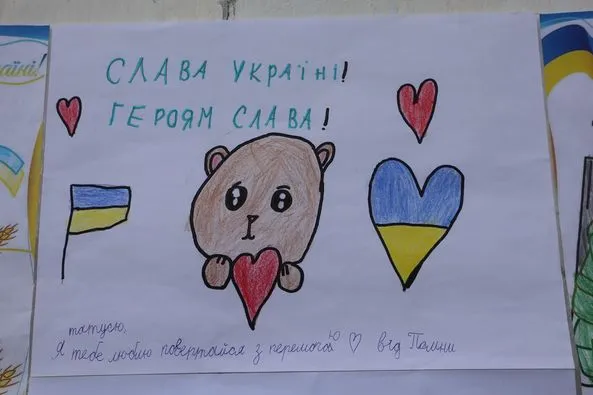 СЛАВА УКРАЇНІ!
ГЕРОЯМ СЛАВА!
татусю,
Я тебе люблю повертайся з перемогою ♡ від Поліни
аїні!